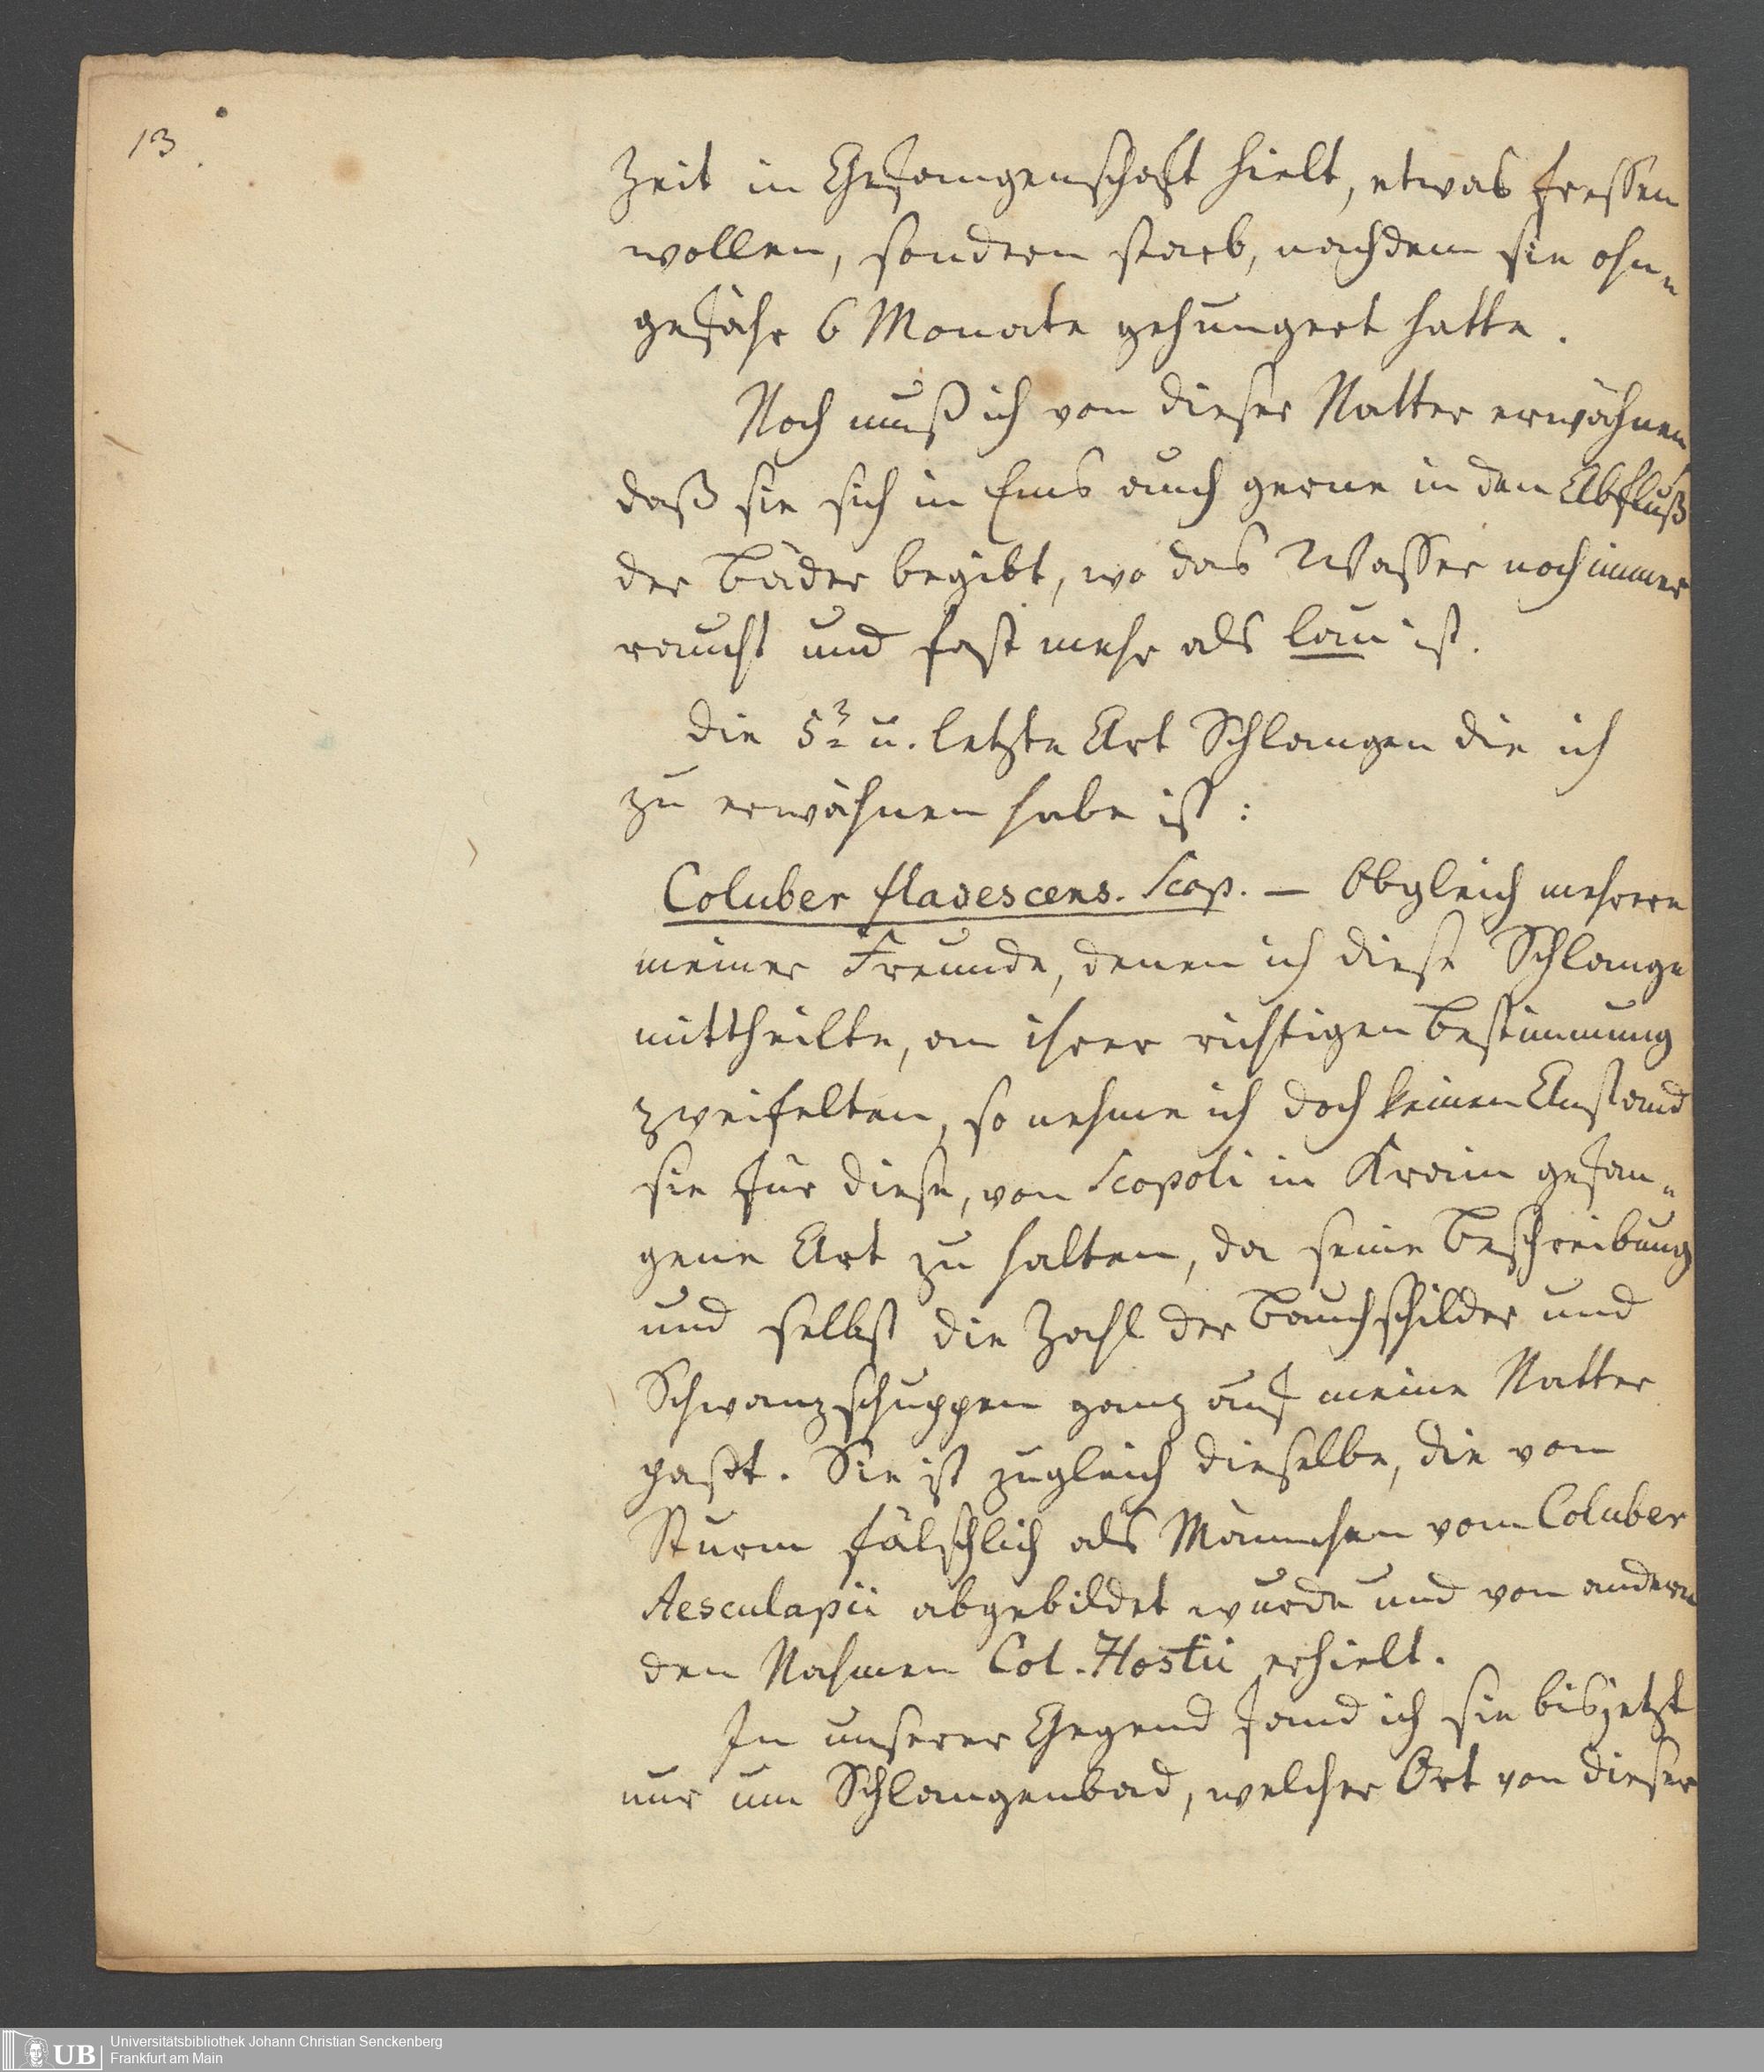 13.
Zeit in Gefangenschaft hielt, etwas fressen
wollen, sondern starb, nachdem sie ohn-
gefähr 6 Monate gehungert hatte.
Noch muß ich von dieser Natter erwähnen,
daß sie sich in Ems auch gerne in den Abfluß
der Bäder begibt, wo das Wasser noch immer
raucht und fast mehr als lau ist.
Die 5te u. letzte Art Schlangen die ich
zu erwähnen habe ist:
Coluber flavescens. Scop. — Obgleich mehrere
meiner Freunde, denen ich diese Schlange
mittheilte, an ihrer richtigen Bestimmung
zweifelten, so nehme ich doch keinen Anstand
sie für diese, von Scopoli in Krain gefan-
gene Art zu halten, da seine Beschreibung
und selbst die Zahl der Bauchschilder und
Schwanzschuppen ganz auf meine Natter
paßt. Sie ist zugleich dieselbe, die von
Sturm fälschlich als Männchen vom Coluber
Aesculapii abgebildet wurde und von andern
den Nahmen Col. Hostii erhielt.
In unserer Gegend fand ich sie bis jetzt
nur um Schlangenbad, welcher Ort von dieser
UB
Universitätsbibliothek Johann Christian Senckenberg
Frankfurt am Main